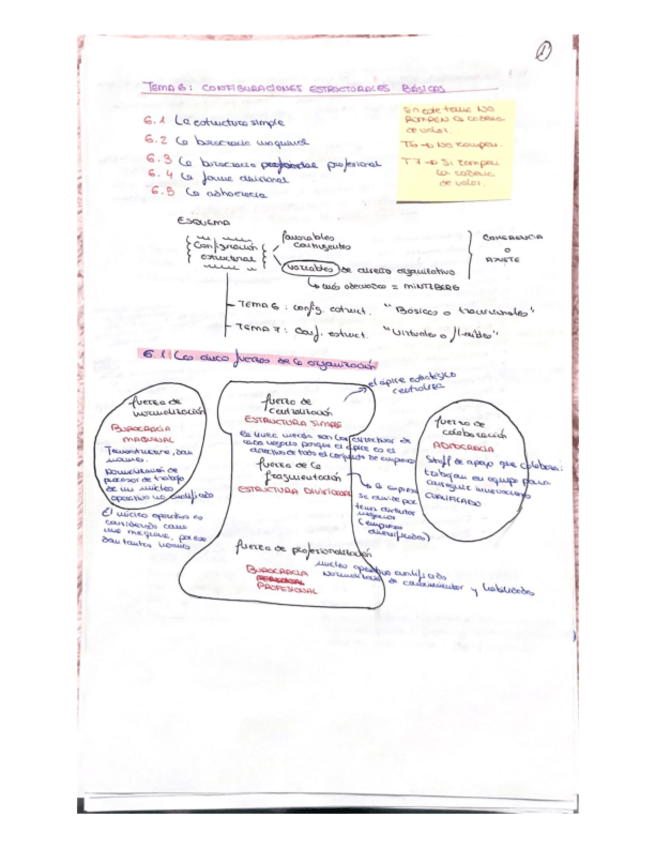 1
TEMA 6: CONFIGURACIONES ESTRUCTURALES BÁSICAS
6.1 La estructura simple
6.2 La burocracia maquinal
6.3 La burocracia profesional
6.4 La forma divisional
6.5 La adhocracia
En este tema NO
ROMPEN la cadena
de valor.
T6 → No rompen.
T7 → Si rompen
la cadena
de valor.
ESQUEMA
Configuración
estructural
favorables
contingentes
variables de diseño organizativo
más adecuadas = MINTZBERG
COHERENCIA
O
AJUSTE
TEMA 6: config. estruct. "Básicas o tradicionales"
TEMA 7: Conf. estruct. "Virtuales o fluidas"
6.1 Las cinco fuerzas de la organización
el ápice estratégico
centraliza
fuerza de
normalización
BUROCRACIA
MAQUINAL
Tecnoestructura, dan
normas.
Normalización de
procesos de trabajo
de un núcleo
operativo no cualificado
El núcleo operativo es
considerado como
una máquina, por eso
dan tantas normas
fuerza de
centralización
ESTRUCTURA SIMPLE
La línea media son los directivos de
cada negocio porque el ápice es el
directivo de todo el conjunto de empresas
fuerza de la
fragmentación
ESTRUCTURA DIVISIONAL
la empresa
se divide por
tener distintos
negocios
(empresas
diversificadas)
fuerza de
colaboración
ADHOCRACIA
Staff de apoyo que colabora:
trabajan en equipo para
conseguir innovaciones
CUALIFICADO
fuerza de profesionalización
BUROCRACIA
PROFESIONAL
núcleo operativo cualificado
normalización de conocimientos y habilidades